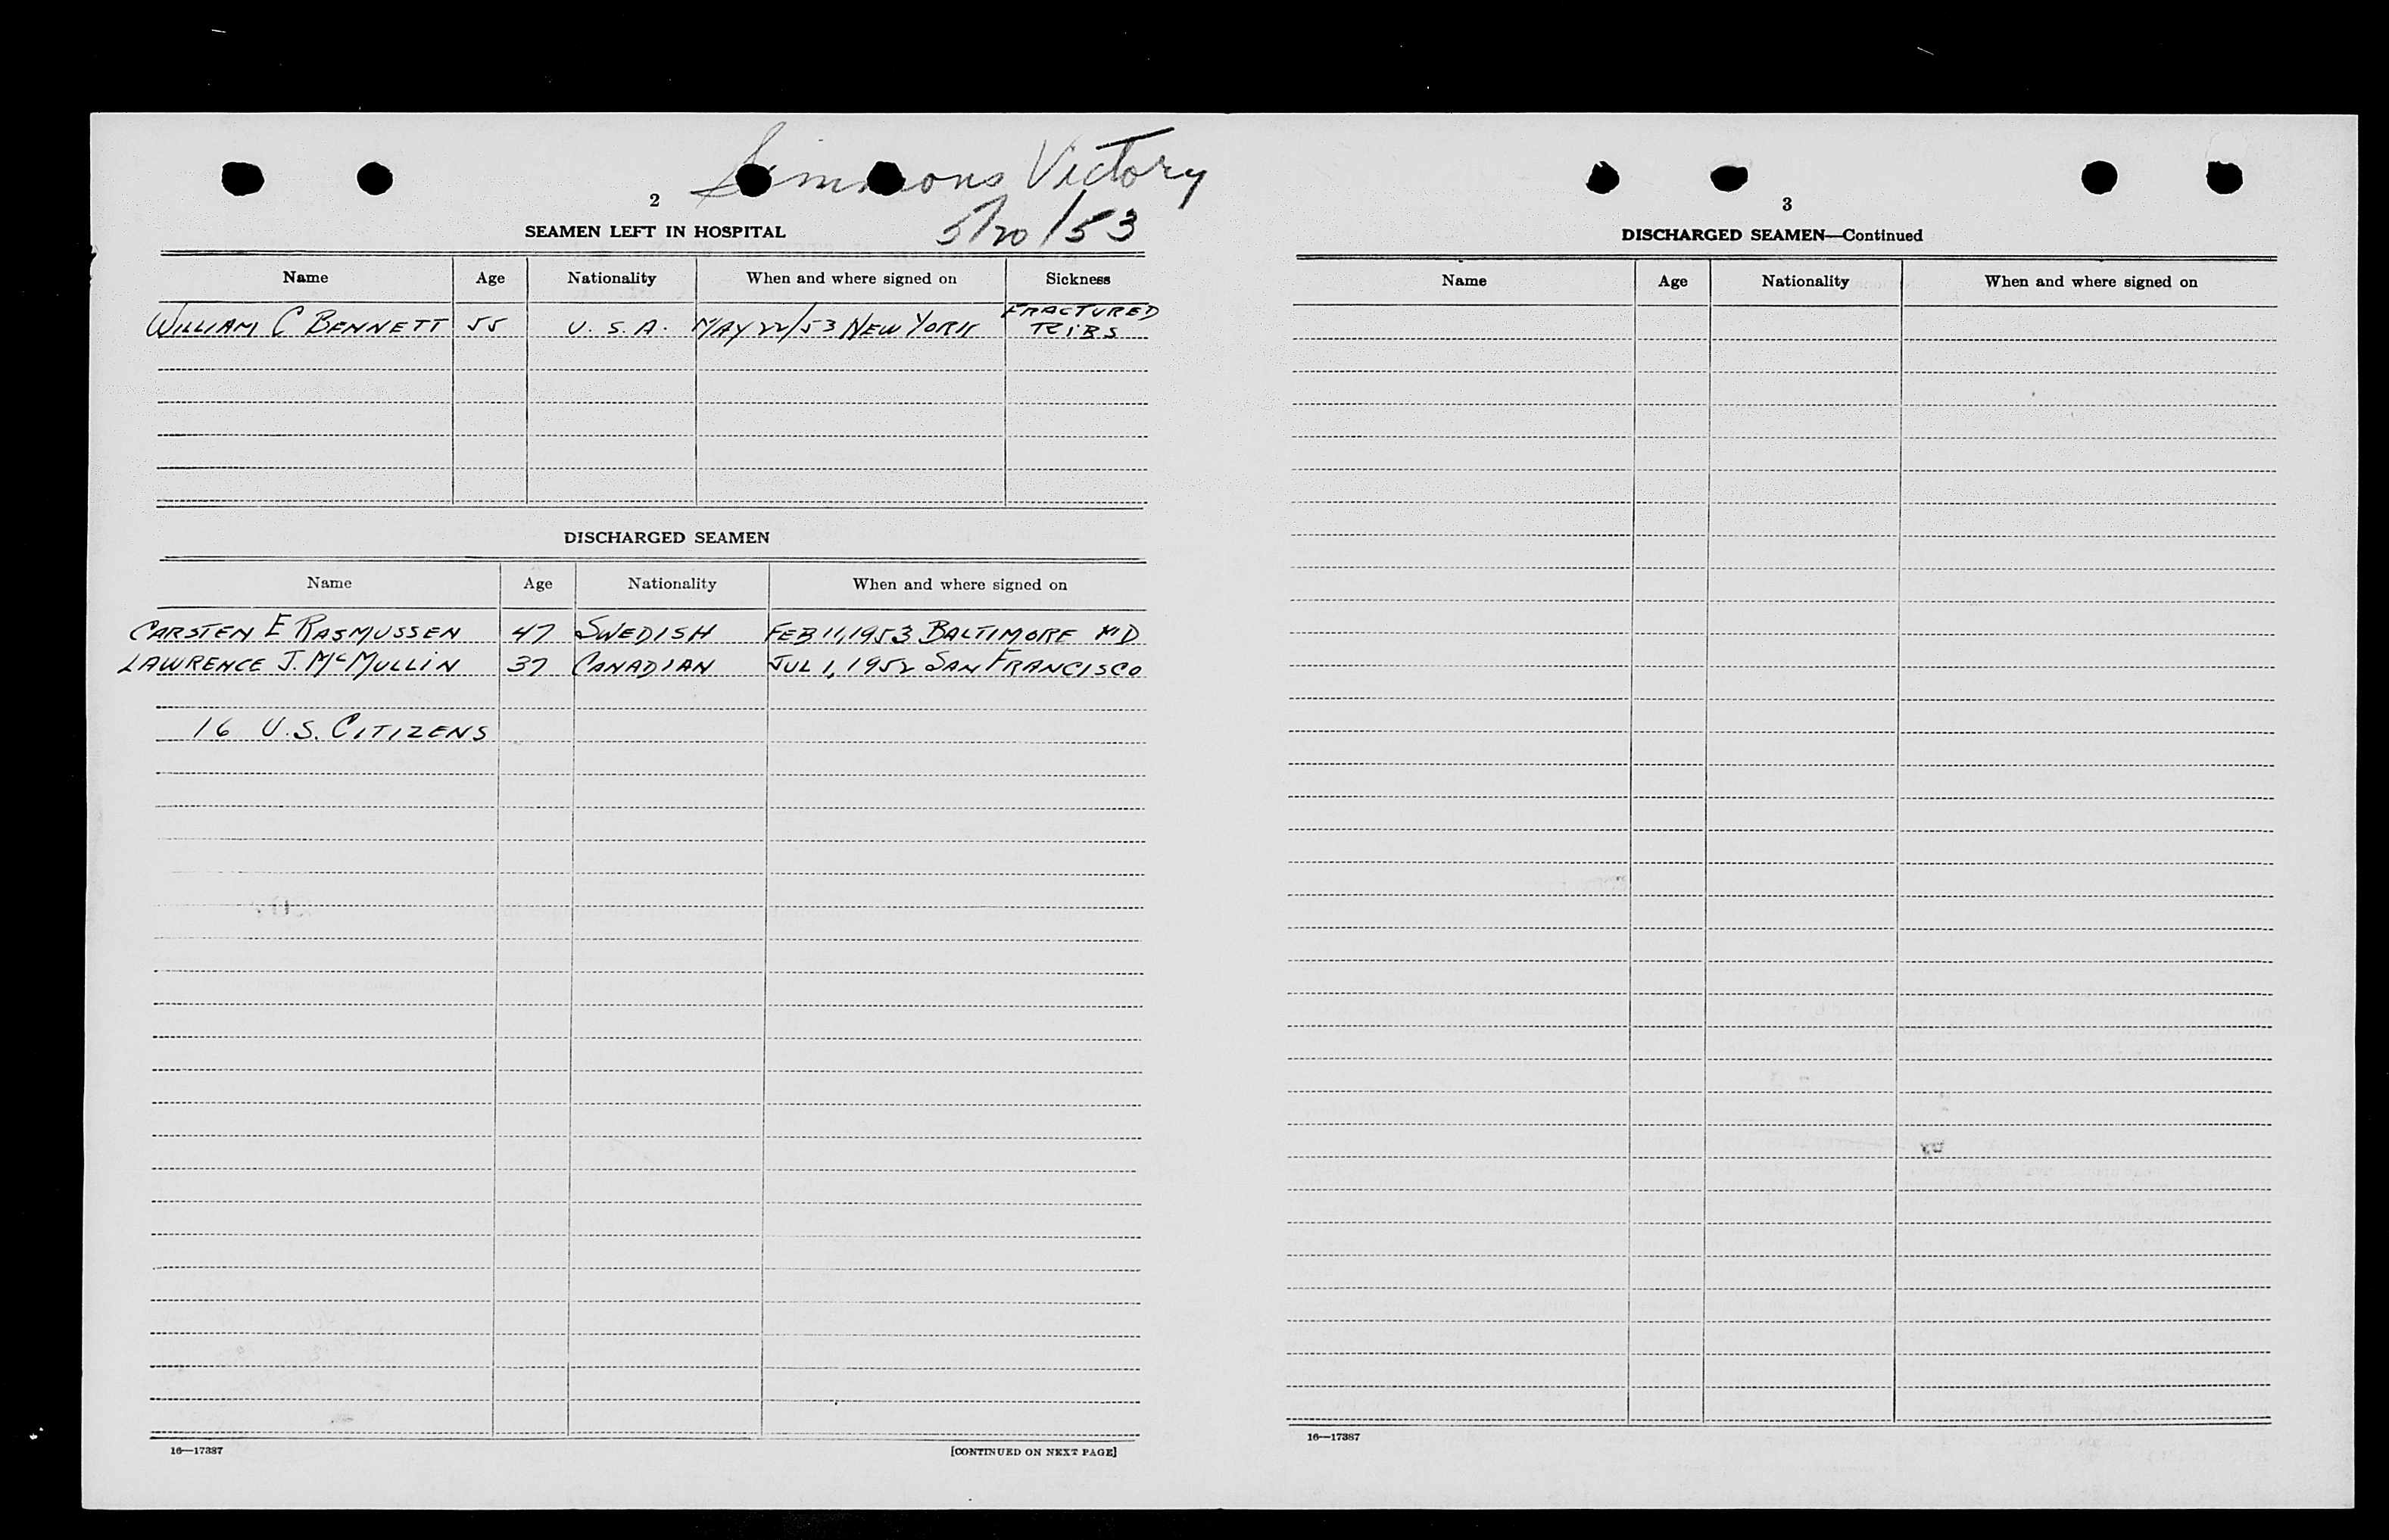 Simmons Victory
5/20/53
2
SEAMEN LEFT IN HOSPITAL
Name Age Nationality When and where signed on Sickness
WILLIAM C BENNETT 55 U. S. A. MAY 22/53 NEW YORK FRACTURED RIBS
DISCHARGED SEAMEN
Name Age Nationality When and where signed on
CARSTEN E RASMUSSEN 47 SWEDISH FEB 11, 1953 BALTIMORE MD
LAWRENCE J. McMULLIN 37 CANADIAN JUL 1, 1952 SAN FRANCISCO
16 U.S. CITIZENS
16—17387
[CONTINUED ON NEXT PAGE]
3
DISCHARGED SEAMEN—Continued
Name Age Nationality When and where signed on
16—17387